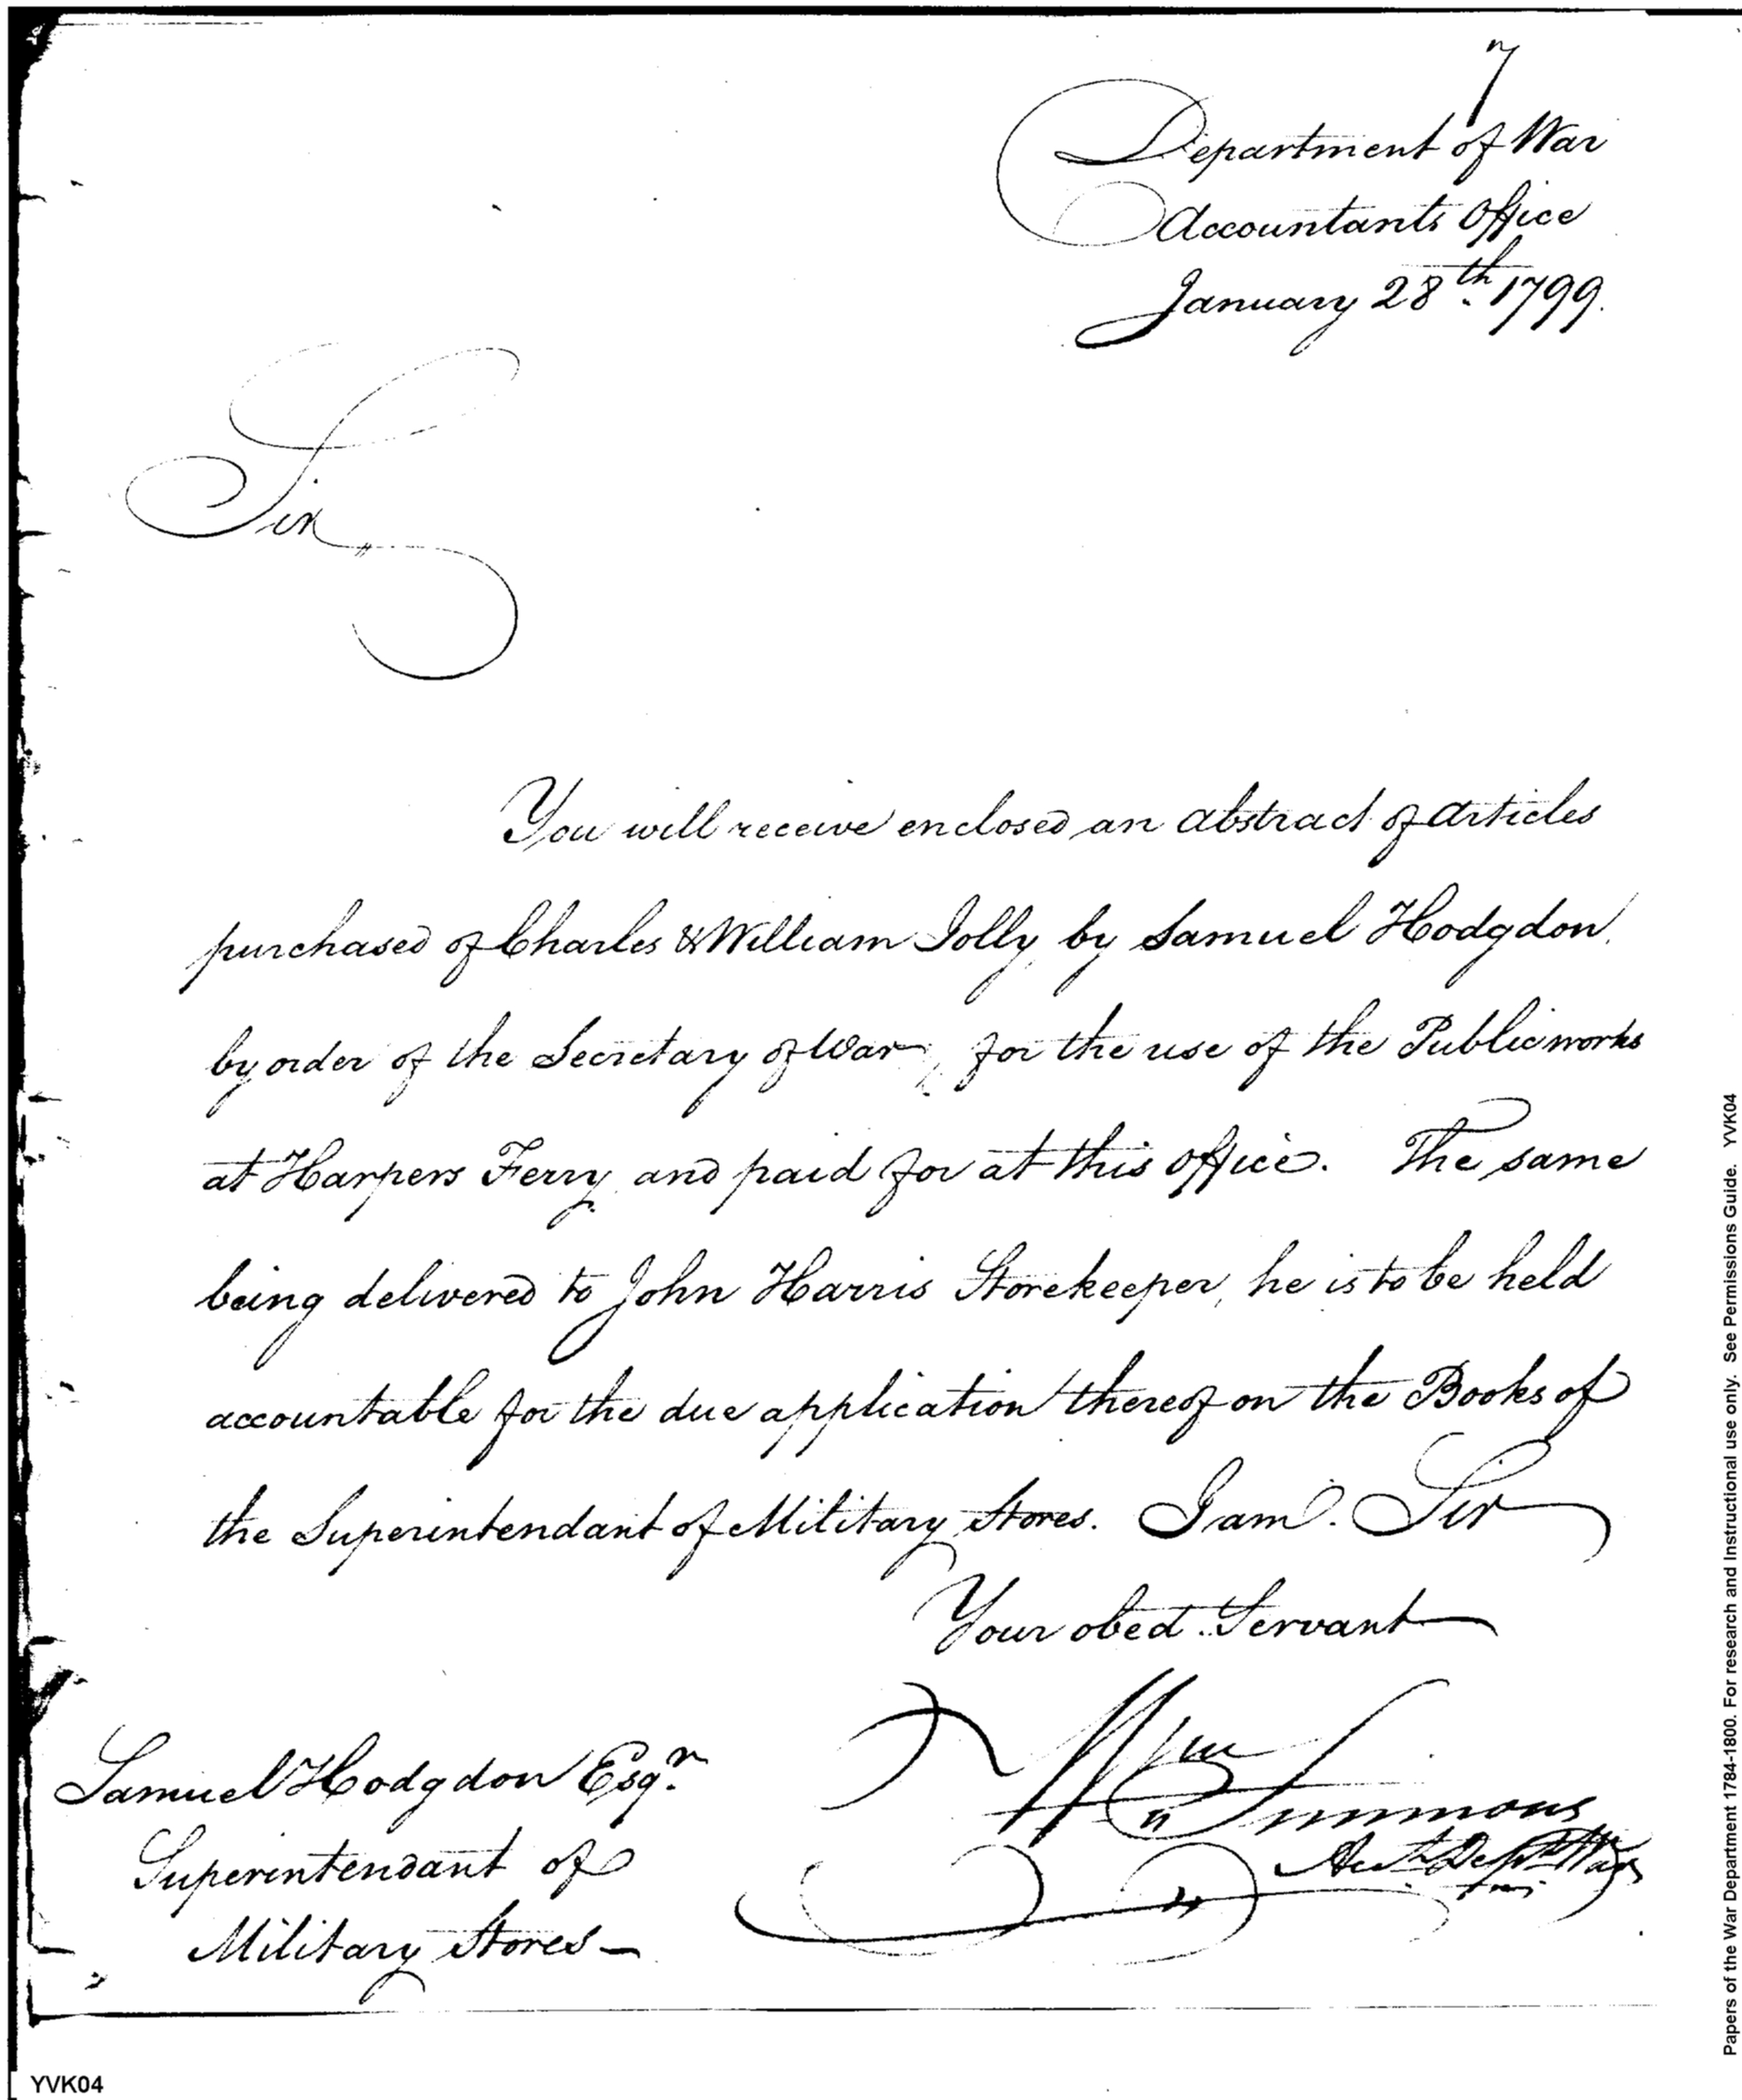 7
Department of War
Accountants Office
January 28th. 1799.
Sir
You will receive enclosed an abstract of articles
purchased of Charles & William Jolly by Samuel Hodgdon,
by order of the Secretary of War, for the use of the Public works
at Harpers Ferry and paid for at this office. The same
being delivered to John Harris Storekeeper, he is to be held
accountable for the due application thereof on the Books of
the Superintendant of Military Stores. I am. Sir
Your obed. Servant
Wm Simmons
Acct. Dept. War
Samuel Hodgdon Esqr.
Superintendant of
Military Stores —
Papers of the War Department 1784-1800. For research and Instructional use only. See Permissions Guide. YVK04
YVK04